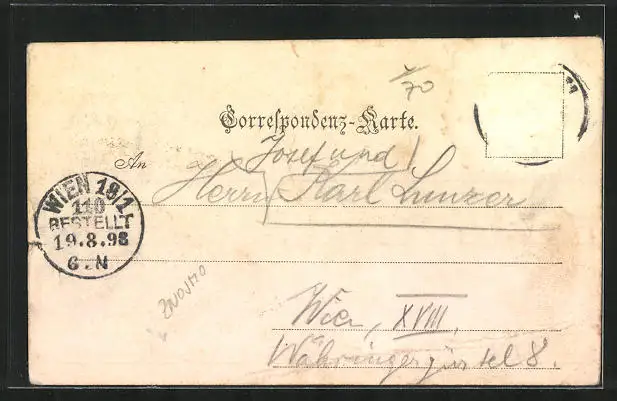 1/70
Correspondenz-Karte.
An
Josef und
Herrn Karl Lunzer
WIEN 18/1
110
BESTELLT
19.8.98
6.N
Wien, XVIII,
Währingergürtel 8.